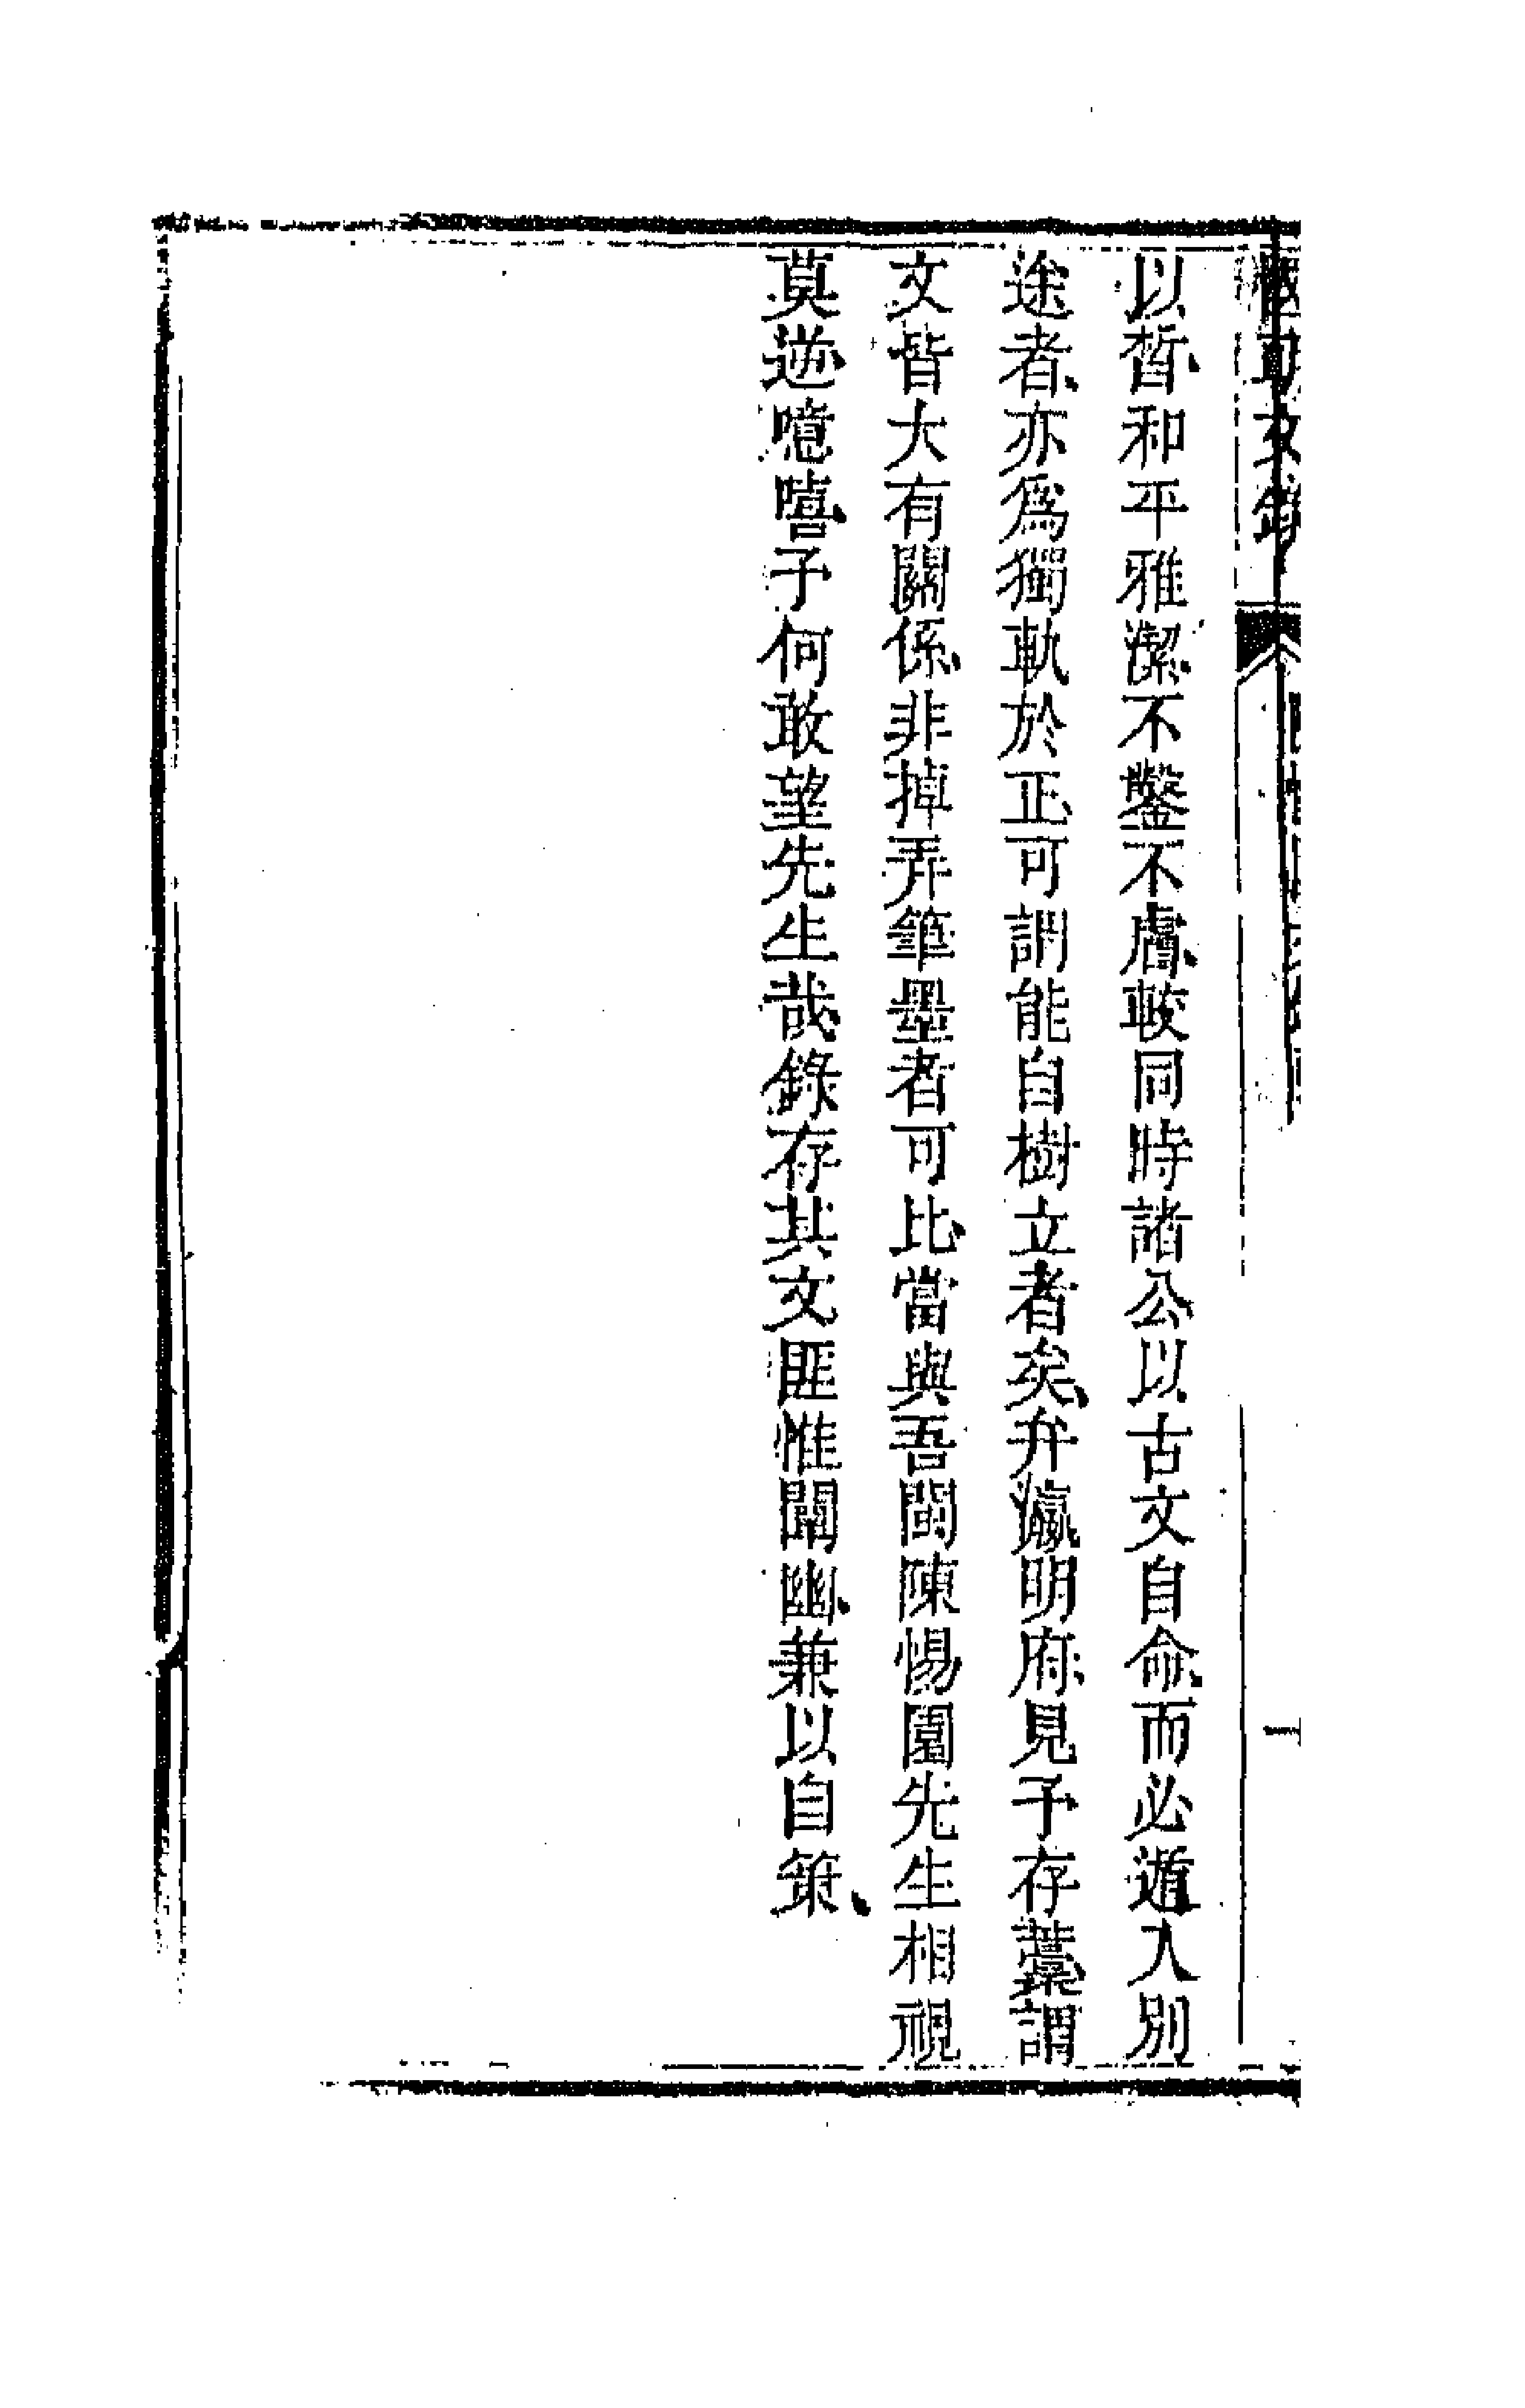 文錄
一
以晳和平雅潔不鑿不膚較同時諸公以古文自命而必遁入別
途者亦爲獨軌於正可謂能自樹立者矣弁瀛明府見予存藁謂
文皆大有關係非掉弄筆墨者可比當與吾閩陳惕園先生相視
莫逆噫嘻予何敢望先生哉錄存其文匪惟闡幽兼以自策